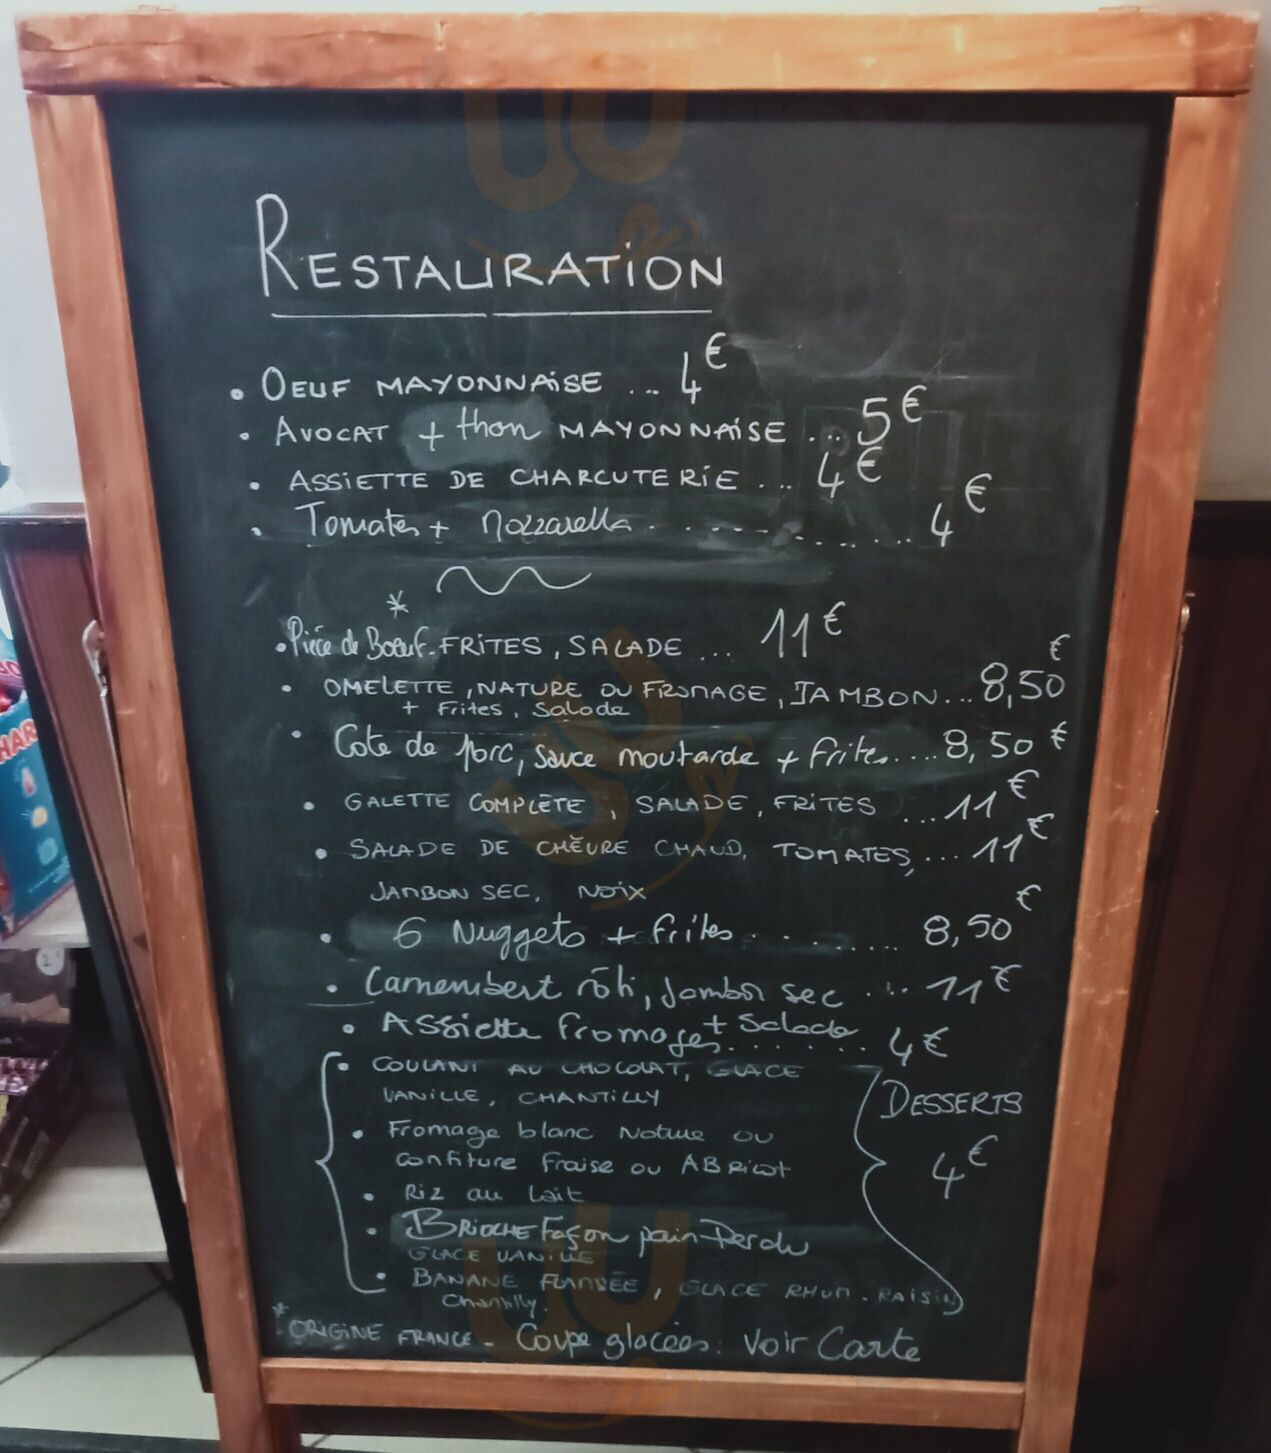 RESTAURATION
• OEUF MAYONNAISE ... 4€
• AVOCAT + thon MAYONNAISE ... 5€
• ASSIETTE DE CHARCUTERIE ... 4€
• Tomates + Mozzarella ........... 4€
*
• Pièce de Boeuf - FRITES, SALADE ... 11€
• OMELETTE, NATURE OU FROMAGE, JAMBON... 8,50€
+ Frites, Salade
• Cote de porc, sauce moutarde + frites.... 8,50€
• GALETTE COMPLÈTE, SALADE, FRITES ... 11€
• SALADE DE CHÈVRE CHAUD, TOMATES, ... 11€
JAMBON SEC, NOIX
• 6 Nuggets + frites ........ 8,50€
• Camembert rôti, Jambon sec .... 11€
• Assiette fromages + Salade ....... 4€
• COULANT AU CHOCOLAT, GLACE
VANILLE, CHANTILLY
DESSERTS
• Fromage blanc Nature ou
confiture fraise ou ABricot
4€
• Riz au lait
• BRIOCHE Façon pain Perdu
GLACE VANILLE
• BANANE FLAMBÉE, GLACE RHUM-RAISIN
Chantilly.
* ORIGINE FRANCE - Coupe glacées: Voir Carte